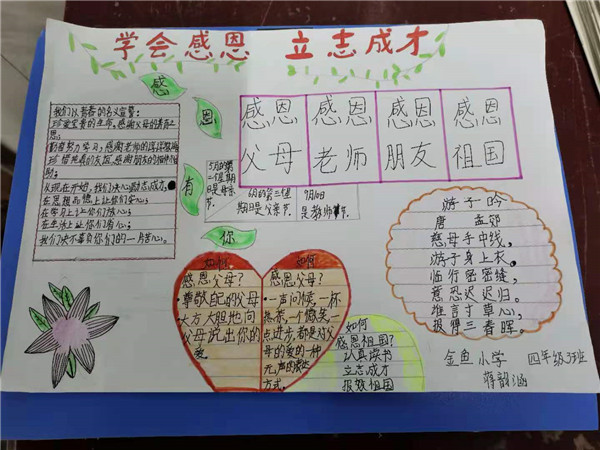 学会感恩 立志成才
感
恩
有
你
我们以青春的名义宣誓:
珍爱宝贵的生命,感谢父母的养育之
恩。
勤奋努力学习,感谢老师的谆谆教诲
珍惜纯真的友谊,感谢朋友的相伴相
助。
从现在开始,我们决心励志成才。
在思想品德上让你们安心;
在学习上让你们放心;
在生活上让你们省心;
我们决不辜负你们的一片苦心。
感恩 感恩 感恩 感恩
父母 老师 朋友 祖国
5月的第
二星期
日是母亲
节。
6月的第三星
期日是父亲节。
9月10日
是教师节。
游子吟
唐 孟郊
慈母手中线,
游子身上衣。
临行密密缝,
意恐迟迟归。
谁言寸草心,
报得三春晖。
如何
感恩父母?
尊敬自己的父母
大方大胆地向
父母说出你的
爱
如何
感恩父母?
一声问候,一杯
热茶,一个微笑,一
点进步,都是对父
母的爱的一种
无声的表达
方式。
如何
感恩祖国?
认真读书
立志成才
报效祖国
金鱼小学 四年级3班
蒋韵涵